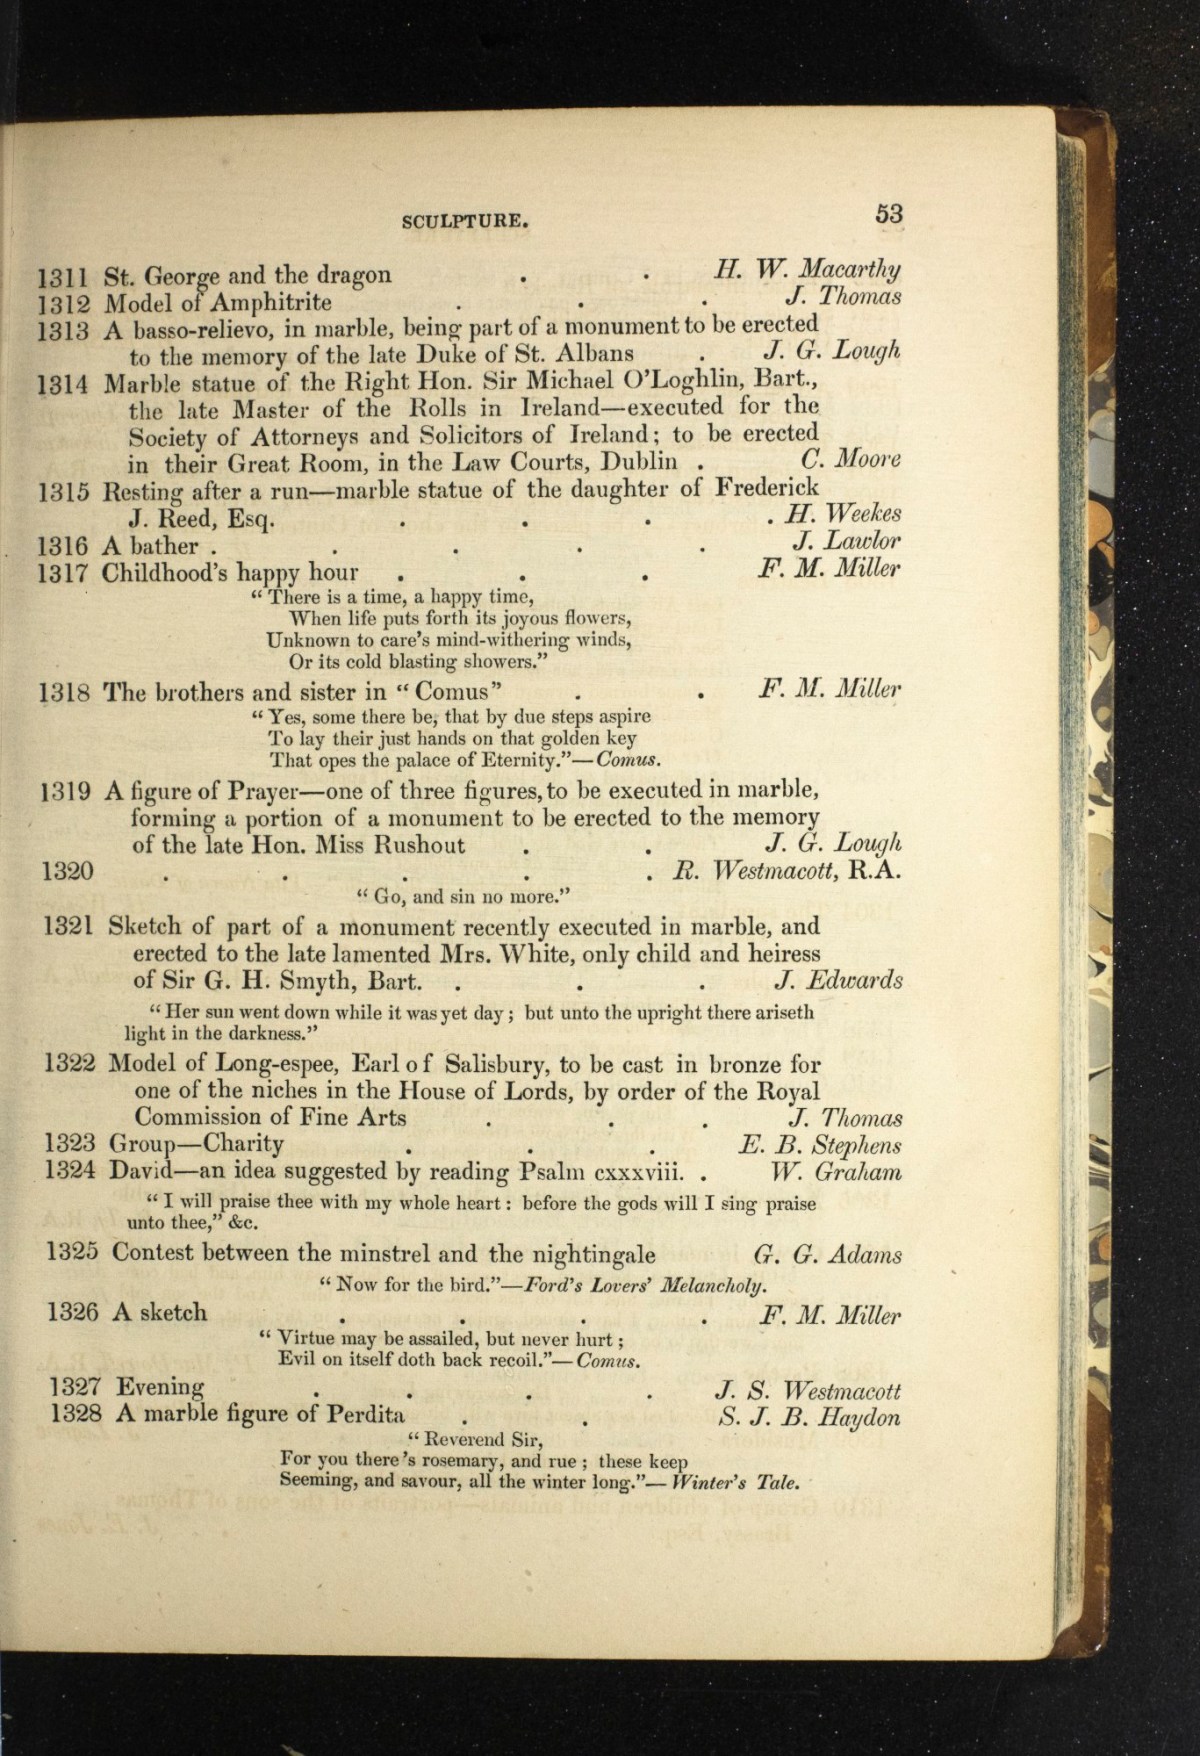 SCULPTURE. 53
1311 St. George and the dragon . . H. W. Macarthy
1312 Model of Amphitrite . . . J. Thomas
1313 A basso-relievo, in marble, being part of a monument to be erected
to the memory of the late Duke of St. Albans . J. G. Lough
1314 Marble statue of the Right Hon. Sir Michael O'Loghlin, Bart.,
the late Master of the Rolls in Ireland—executed for the
Society of Attorneys and Solicitors of Ireland; to be erected
in their Great Room, in the Law Courts, Dublin . C. Moore
1315 Resting after a run—marble statue of the daughter of Frederick
J. Reed, Esq. . . . . H. Weekes
1316 A bather . . . . . J. Lawlor
1317 Childhood's happy hour . . . F. M. Miller
"There is a time, a happy time,
When life puts forth its joyous flowers,
Unknown to care's mind-withering winds,
Or its cold blasting showers."
1318 The brothers and sister in "Comus" . . F. M. Miller
"Yes, some there be, that by due steps aspire
To lay their just hands on that golden key
That opes the palace of Eternity."—Comus.
1319 A figure of Prayer—one of three figures, to be executed in marble,
forming a portion of a monument to be erected to the memory
of the late Hon. Miss Rushout . . J. G. Lough
1320 . . . . . R. Westmacott, R.A.
"Go, and sin no more."
1321 Sketch of part of a monument recently executed in marble, and
erected to the late lamented Mrs. White, only child and heiress
of Sir G. H. Smyth, Bart. . . . J. Edwards
"Her sun went down while it was yet day; but unto the upright there ariseth
light in the darkness."
1322 Model of Long-espee, Earl of Salisbury, to be cast in bronze for
one of the niches in the House of Lords, by order of the Royal
Commission of Fine Arts . . . J. Thomas
1323 Group—Charity . . . E. B. Stephens
1324 David—an idea suggested by reading Psalm cxxxviii. . W. Graham
"I will praise thee with my whole heart: before the gods will I sing praise
unto thee," &c.
1325 Contest between the minstrel and the nightingale G. G. Adams
"Now for the bird."—Ford's Lovers' Melancholy.
1326 A sketch . . . . F. M. Miller
"Virtue may be assailed, but never hurt;
Evil on itself doth back recoil."—Comus.
1327 Evening . . . . J. S. Westmacott
1328 A marble figure of Perdita . . S. J. B. Haydon
"Reverend Sir,
For you there's rosemary, and rue; these keep
Seeming, and savour, all the winter long."—Winter's Tale.